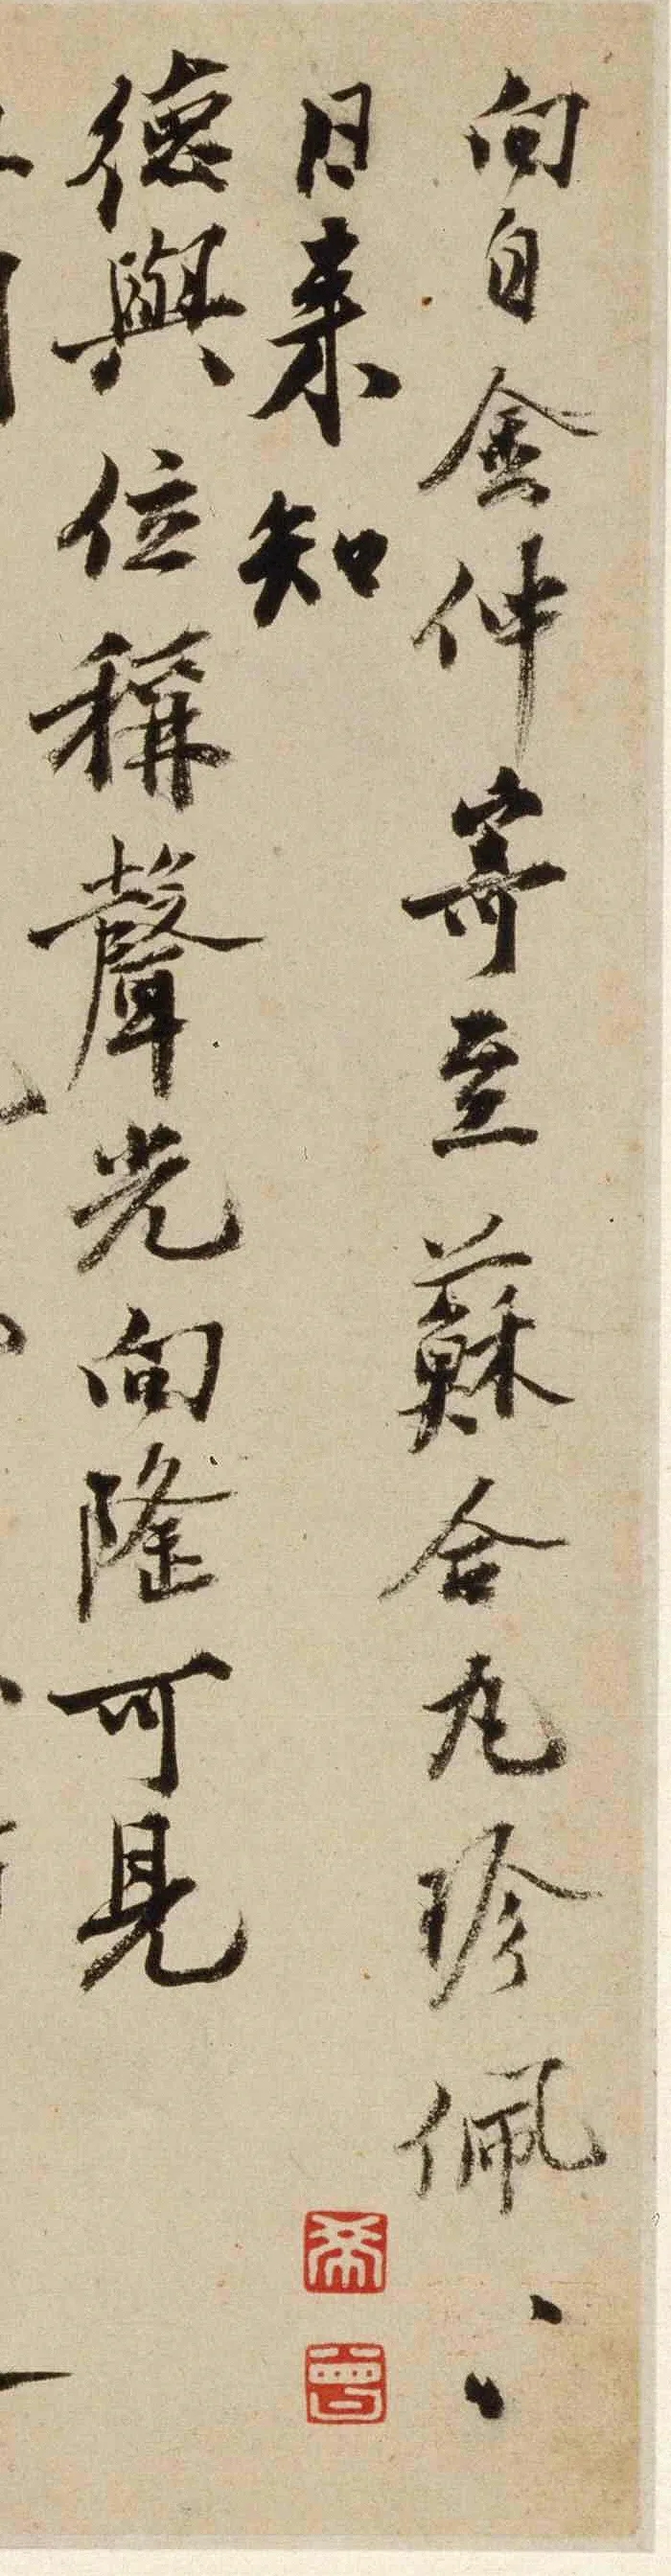 向自金仲寄至蘇合丸珍佩〻
日來知
德與位稱聲光向隆可見